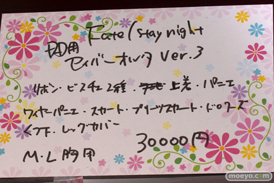 Fate/stay night
DD用 セイバーオルタ ver.3
リボン・ビスチェ2種・上着・パニエ
ワイヤーパニエ・スカート・プリーツスカート・ドロワーズ
レッグカバー
M・L胸用 30000円
moeyo.com